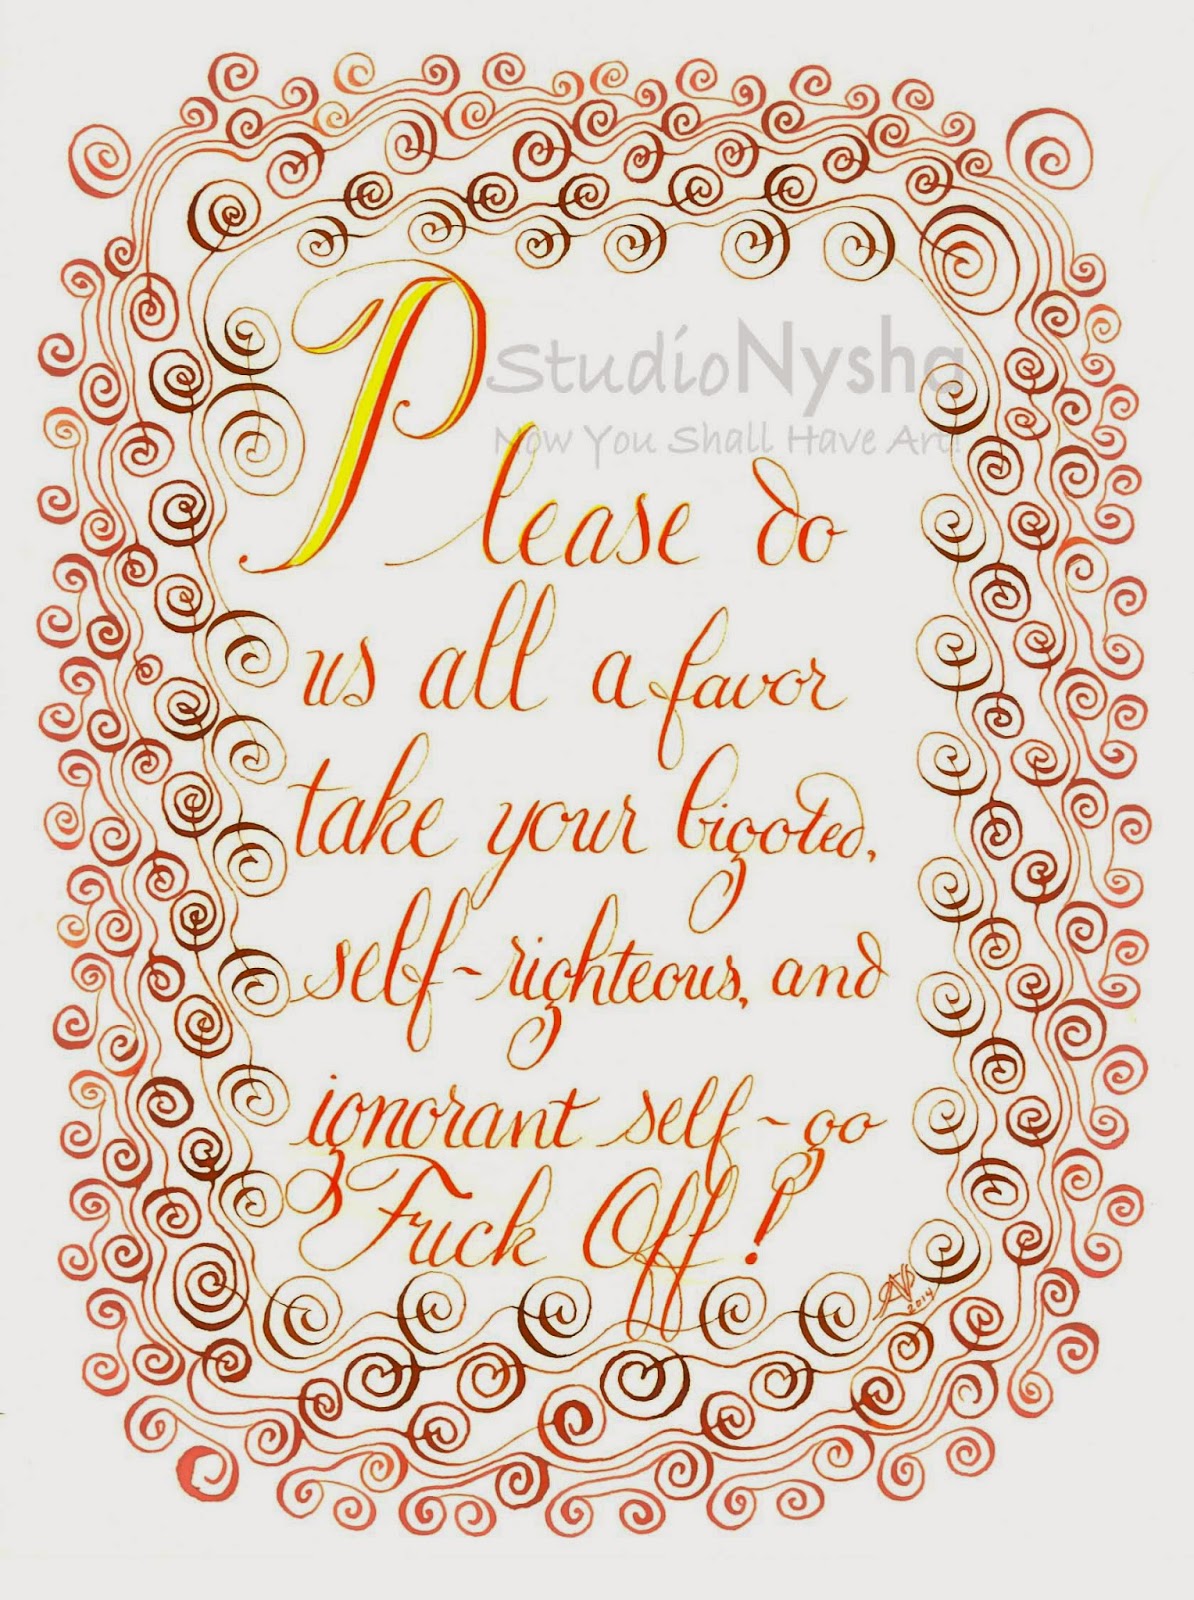 StudioNysha
Now You Shall Have Art!
Please do
us all a favor
take your bigoted,
self-righteous, and
ignorant self-go
Fuck Off!
2014